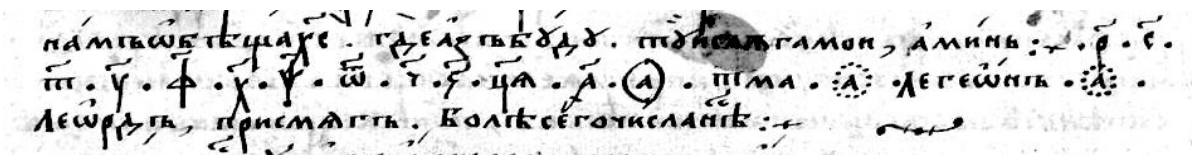 намъѡбѣщахсе . гдеазъбꙋдꙋ . тꙋи гамои, аминь:~ . р҃ . с҃ .
т҃ . у҃ . ф҃ . х҃ . ѱ҃ . ѿ҃ . ц҃ѧ . а҃ . а⃝ . тма . а҈ . легеѡнъ . а҉ .
Леѡрдъ, приемѧтъ . Болѣсегочисланѣ:~